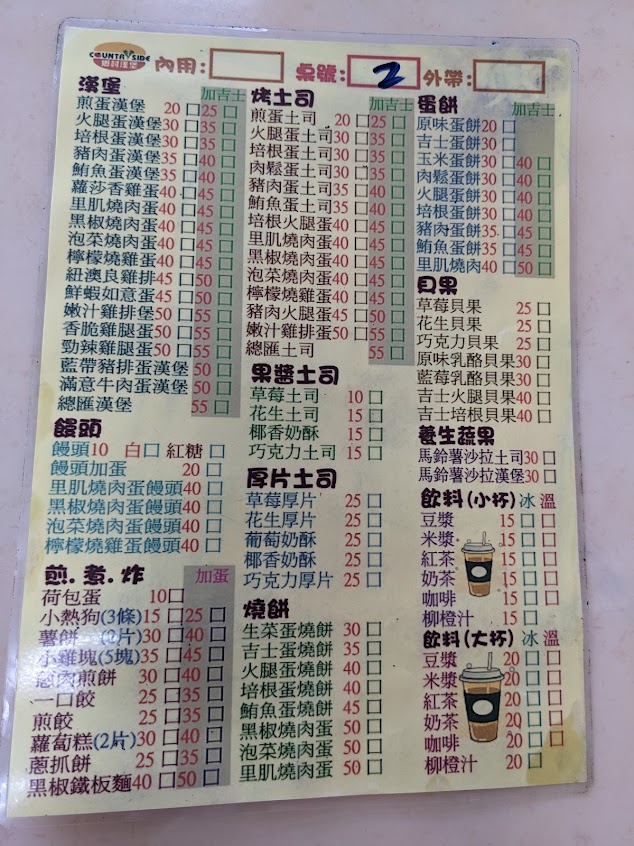 COUNTRYSIDE
鄉村漢堡
內用: 桌號: 2 外帶:
漢堡 加吉士
煎蛋漢堡 20 口 25 口
火腿蛋漢堡 30 口 35 口
培根蛋漢堡 30 口 35 口
豬肉蛋漢堡 35 口 40 口
鮪魚蛋漢堡 35 口 40 口
蘿莎香雞蛋 40 口 45 口
里肌燒肉蛋 40 口 45 口
黑椒燒肉蛋 40 口 45 口
泡菜燒肉蛋 40 口 45 口
檸檬燒雞蛋 40 口 45 口
紐澳良雞排 45 口 50 口
鮮蝦如意蛋 45 口 50 口
嫩汁雞排堡 50 口 55 口
香脆雞腿蛋 50 口 55 口
勁辣雞腿蛋 50 口 55 口
藍帶豬排蛋漢堡 50 口
滿意牛肉蛋漢堡 50 口
總匯漢堡 55 口
饅頭
饅頭10 白口 紅糖口
饅頭加蛋 20 口
里肌燒肉蛋饅頭 40 口
黑椒燒肉蛋饅頭 40 口
泡菜燒肉蛋饅頭 40 口
檸檬燒雞蛋饅頭 40 口
煎.煮.炸 加蛋
荷包蛋 10 口
小熱狗(3條) 15 口 25 口
薯餅 (2片) 30 口 40 口
小雞塊(5塊) 35 口 45 口
蔥肉煎餅 30 口 40 口
一口餃 25 口 35 口
煎餃 25 口 35 口
蘿蔔糕(2片) 30 口 40 口
蔥抓餅 25 口 35 口
黑椒鐵板麵 40 口 50 口
烤土司 加吉士
煎蛋土司 20 口 25 口
火腿蛋土司 30 口 35 口
培根蛋土司 30 口 35 口
肉鬆蛋土司 30 口 35 口
豬肉蛋土司 35 口 40 口
鮪魚蛋土司 35 口 40 口
培根火腿蛋 40 口 45 口
里肌燒肉蛋 40 口 45 口
黑椒燒肉蛋 40 口 45 口
泡菜燒肉蛋 40 口 45 口
檸檬燒雞蛋 40 口 45 口
豬肉火腿蛋 45 口 50 口
嫩汁雞排蛋 50 口 55 口
總匯土司 55 口
果醬土司
草莓土司 10 口
花生土司 15 口
椰香奶酥 15 口
巧克力土司 15 口
厚片土司
草莓厚片 25 口
花生厚片 25 口
葡萄奶酥 25 口
椰香奶酥 25 口
巧克力厚片 25 口
燒餅
生菜蛋燒餅 30 口
吉士蛋燒餅 35 口
火腿蛋燒餅 40 口
培根蛋燒餅 40 口
鮪魚蛋燒餅 45 口
黑椒燒肉蛋 50 口
泡菜燒肉蛋 50 口
里肌燒肉蛋 50 口
蛋餅 加吉士
原味蛋餅 20 口
吉士蛋餅 30 口
玉米蛋餅 30 口 40 口
肉鬆蛋餅 30 口 40 口
火腿蛋餅 30 口 40 口
培根蛋餅 30 口 40 口
豬肉蛋餅 35 口 45 口
鮪魚蛋餅 35 口 45 口
里肌燒肉 40 口 50 口
貝果
草莓貝果 25 口
花生貝果 25 口
巧克力貝果 25 口
原味乳酪貝果 30 口
藍莓乳酪貝果 30 口
吉士火腿貝果 40 口
吉士培根貝果 40 口
養生蔬果
馬鈴薯沙拉土司 30 口
馬鈴薯沙拉漢堡 30 口
飲料(小杯) 冰 溫
豆漿 15 口 口
米漿 15 口 口
紅茶 15 口 口
奶茶 15 口 口
咖啡 15 口 口
柳橙汁 15 口
飲料(大杯) 冰 溫
豆漿 20 口 口
米漿 20 口 口
紅茶 20 口 口
奶茶 20 口 口
咖啡 20 口 口
柳橙汁 20 口